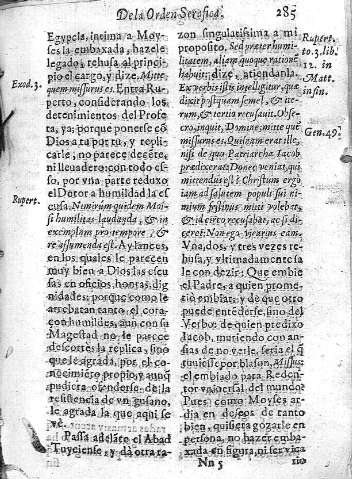 De la Orden Serafica. 285
Egypcia, intima a Moy-
ses la embaxada, hazele
legado; rehusa al princi-
pio el cargo, y dize, Mitte
quem missurus es. Entra Ru-
perto, considerando los
detenimientos del Profe-
ta, ya; porque ponerse cō
Dios a tu por tu, y repli-
carle; no parece decēte,
ni lleuadero: con todo es-
so, por vna parte reduxo
el Dctor a humildad la es-
cusa. Nimirum quidem Moy-
si humilitas laudāda, & in
exemplam pro tempore, &
re assumenda est. Ay lances,
en los quales le parecen
muy bien a Dios las escu-
sas en oficios, honras, dig-
nidades; porque como le
arrebatan tanto, el cora-
çon humildes, aun con su
Magestad no le parece
descortès la replica, sino
que le agrada, por el co-
nocimiēto propio, y aunq̄
pudiera ofenderse de la
resistencia de vn gusano,
le agrada la que aqui se
vè.
Passa adelāte el Abad
Tuyciense, y dà otra ra-
Exod. 3.
Rupert.
zon singularissima a mi
proposito. Sed præter humi-
litatem, aliam quoque rationē
habuit; dize, atiendanla.
Ex verbis istis intelligitur, que
dixit postquam semel, & ite-
rum, & tertia recusauit. Obse-
cro, inquit, Domine, mitte què
missurus es. Quis eam erat ille,
nisi de quo Patriarcha Iacob
prædixerat? Donec veniat, qui
mittendus est? Christum ergò
iam ad salutem populi sui ni-
mium festinus mitti volebat,
& ideò recusabat, ac si di-
ceret: Non ego, vicarius eam.
Vna, dos, y tres vezes re-
husa, y vltimadamente sa
le con dezir: Que embie
el Padre, a quien prome-
tiò embiar; y de que otro
puede entēderse, sino del
Verbo: de quien predixo
Jacob, muriendo con an-
sias de no verle, seria el q̄
tuuiesse por blason, Missus;
el embiado para Reden-
tor vniuersal del mundo?
Pues como Moyses ar-
dia en deseos de tanto
bien, quisiera gozarle en
persona, no hazer emba-
xada en figura, ni ser vica
Nn 5 rio
Rupert.
to. 3. lib.
12. in
Matt.
in fin.
Gen. 49.